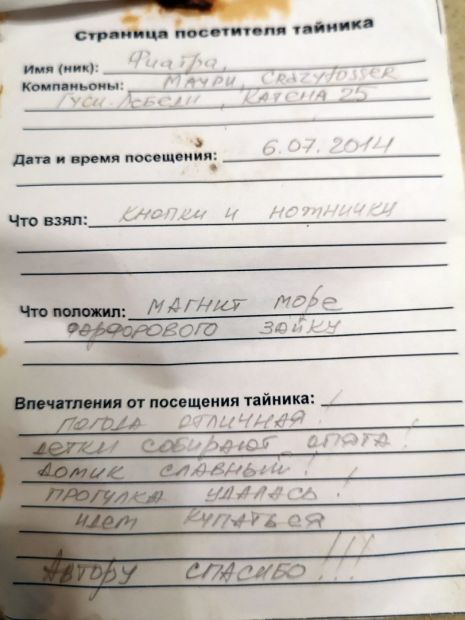 Страница посетителя тайника
Имя (ник): Фиатра,
Компаньоны: Маури, Crazyfosser
Гуси-Лебеди, Катена 25
Дата и время посещения: 6.07.2014
Что взял: кнопки и ножнички
Что положил: магнит море
фарфорового зайку
Впечатления от посещения тайника:
погода отличная!
детки собирают опята!
домик славный!
прогулка удалась!
идем купаться
Автору спасибо!!!